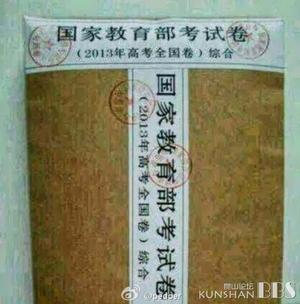 国家教育部考试卷
(2013年高考全国卷)综合
国家教育部考试卷
(2013年高考全国卷)综合
@pedoer
昆山论坛
KUNSHAN BBS